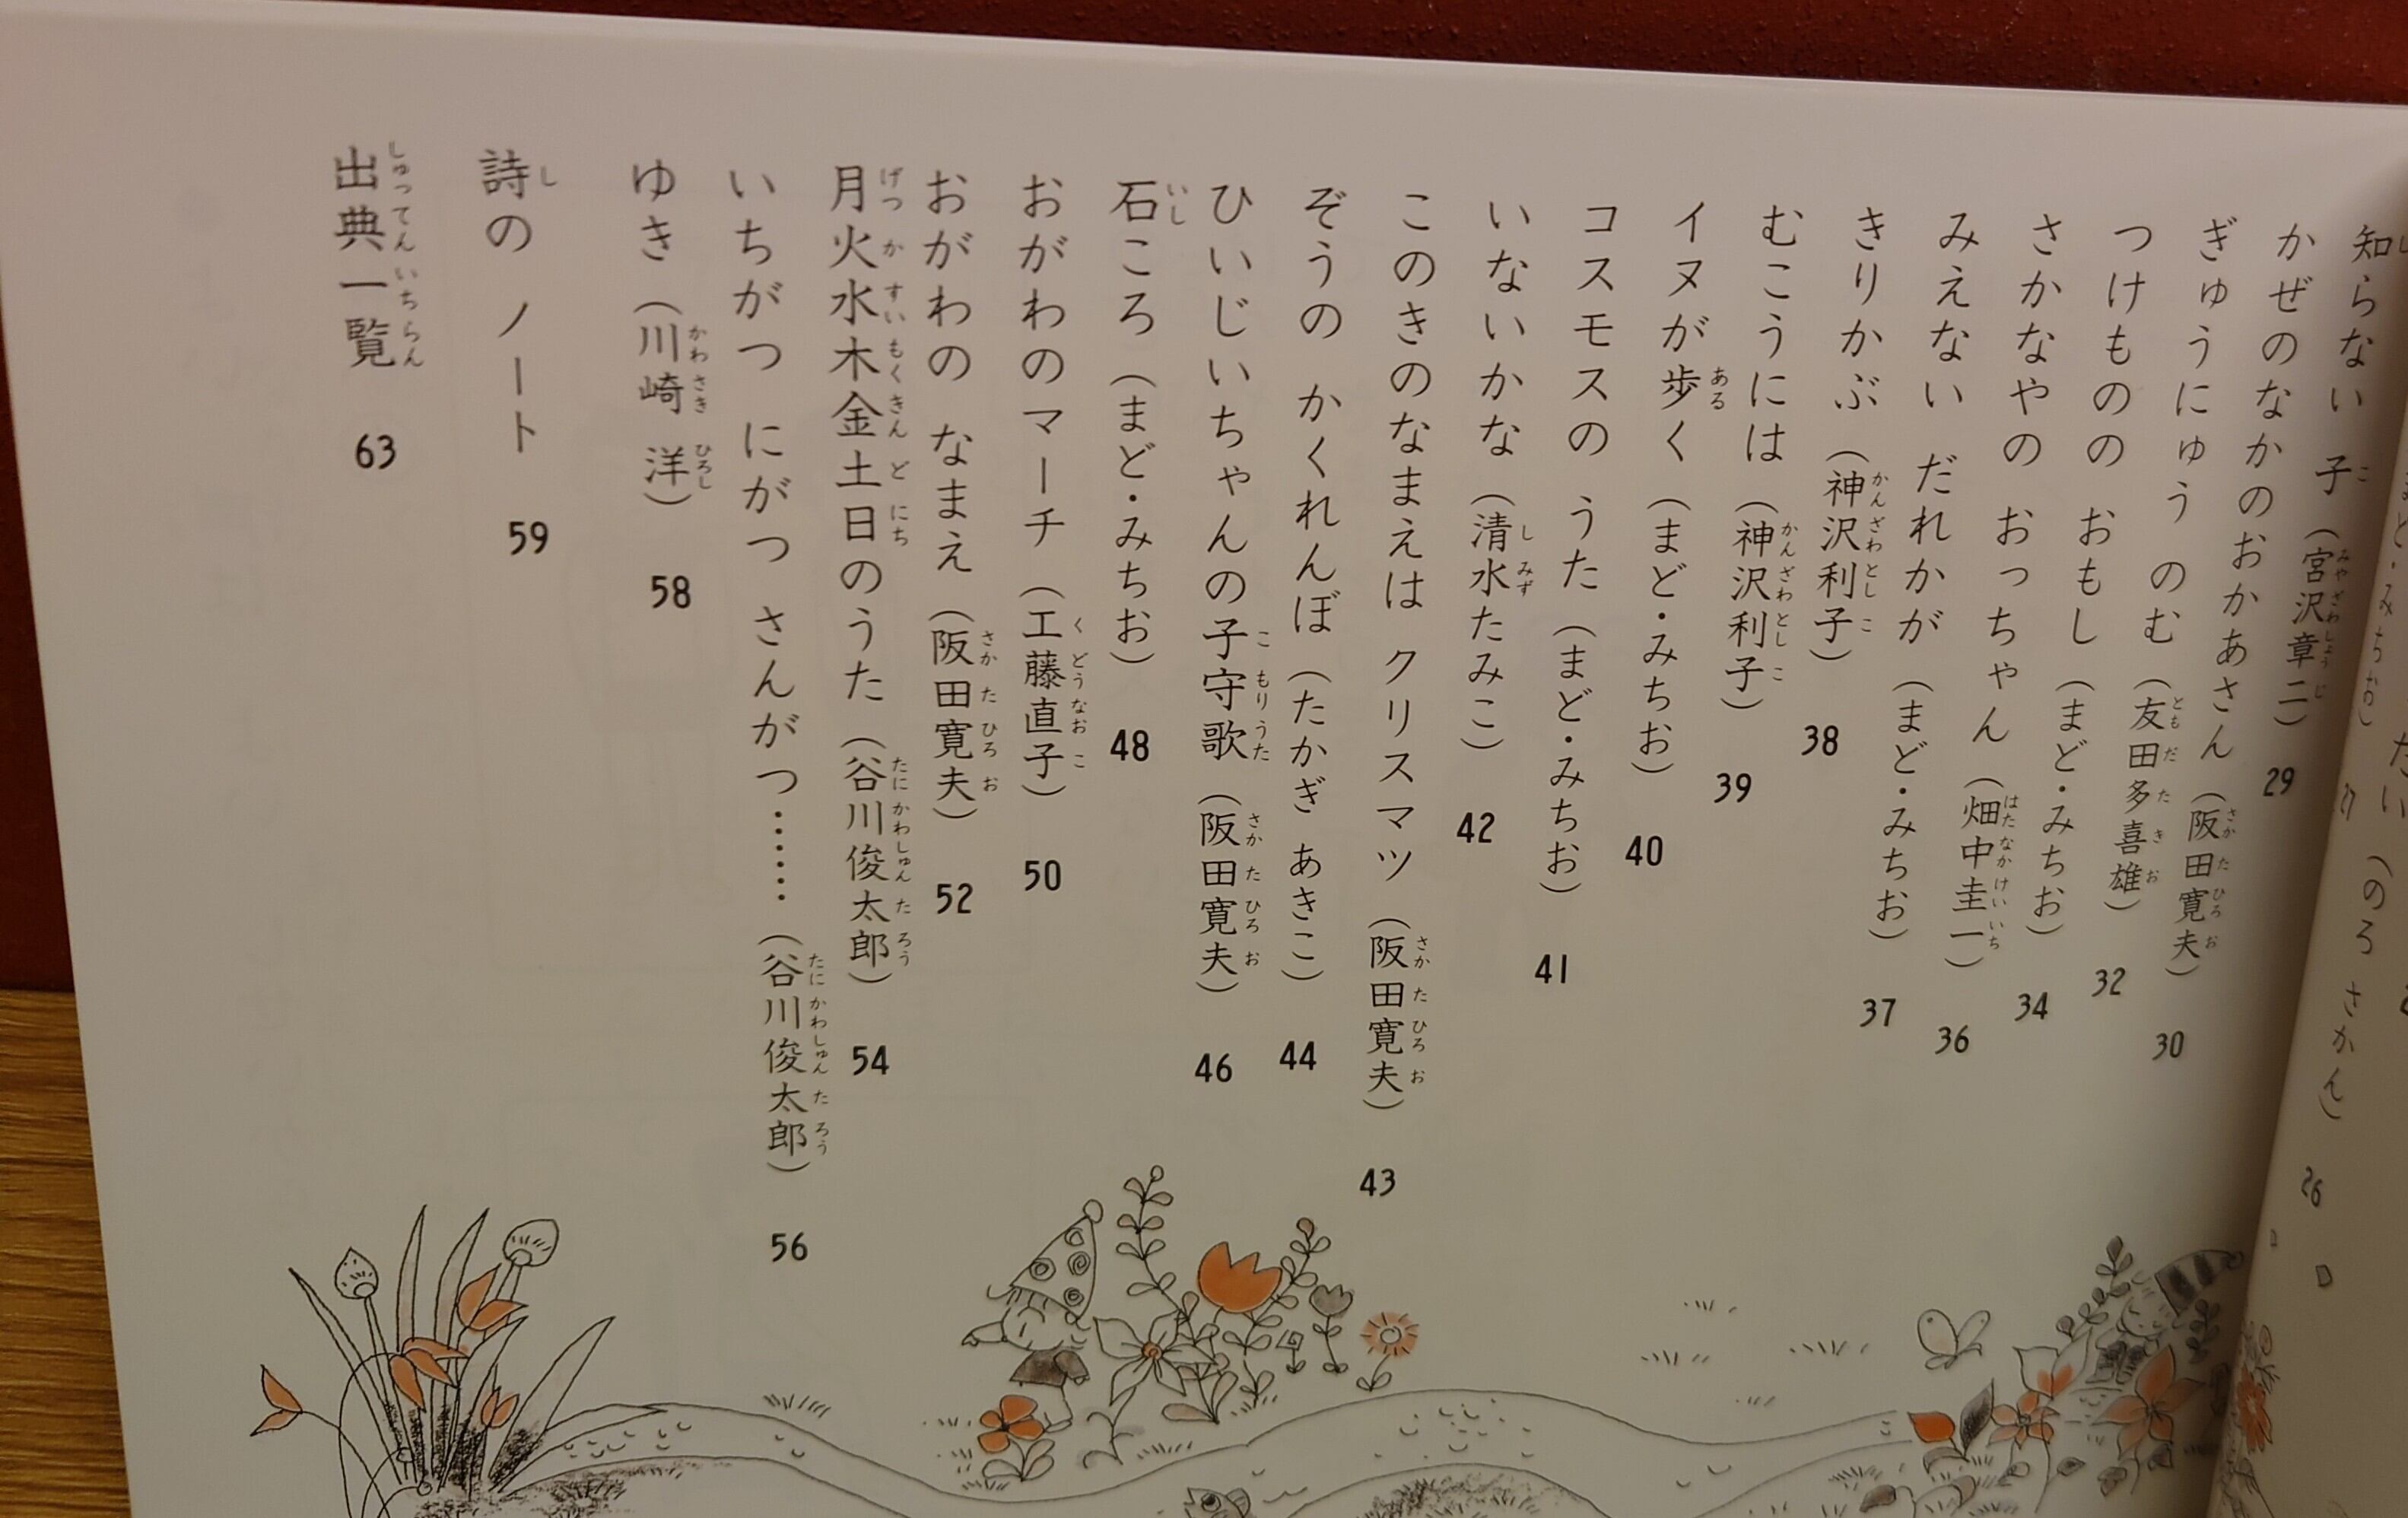 たい（のろ さかん） 26
まど・みちお） 27
知らない子（宮沢章二） 29
かぜのなかのおかあさん（阪田寛夫） 30
ぎゅうにゅう のむ（友田多喜雄） 32
つけものの おもし（まど・みちお） 34
さかなやの おっちゃん（畑中圭一） 36
みえない だれかが（まど・みちお） 37
きりかぶ（神沢利子） 38
むこうには（神沢利子） 39
イヌが歩く（まど・みちお） 40
コスモスの うた（まど・みちお） 41
いないいかな（清水たみこ） 42
このきのなまえは クリスマツ（阪田寛夫） 43
ぞうの かくれんぼ（たかぎ あきこ） 44
ひいじいちゃんの子守歌（阪田寛夫） 46
石ころ（まど・みちお） 48
おがわのマーチ（工藤直子） 50
おがわの なまえ（阪田寛夫） 52
月火水木金土日のうた（谷川俊太郎） 54
いちがつ にがつ さんがつ……（谷川俊太郎） 56
ゆき（川崎 洋） 58
詩の ノート 59
出典一覧 63